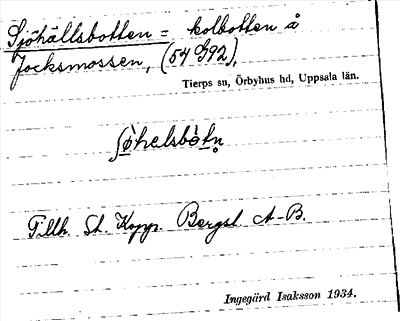 Sjöhällsbotten = kolbotten å
Jocksmossen, (54 G92),
Tierps sn, Örbyhus hd, Uppsala län.
ʃö̀helsbòtn̥
Tillh. St. Kopp. Bergsl. A-B.
Ingegärd Isaksson 1934.